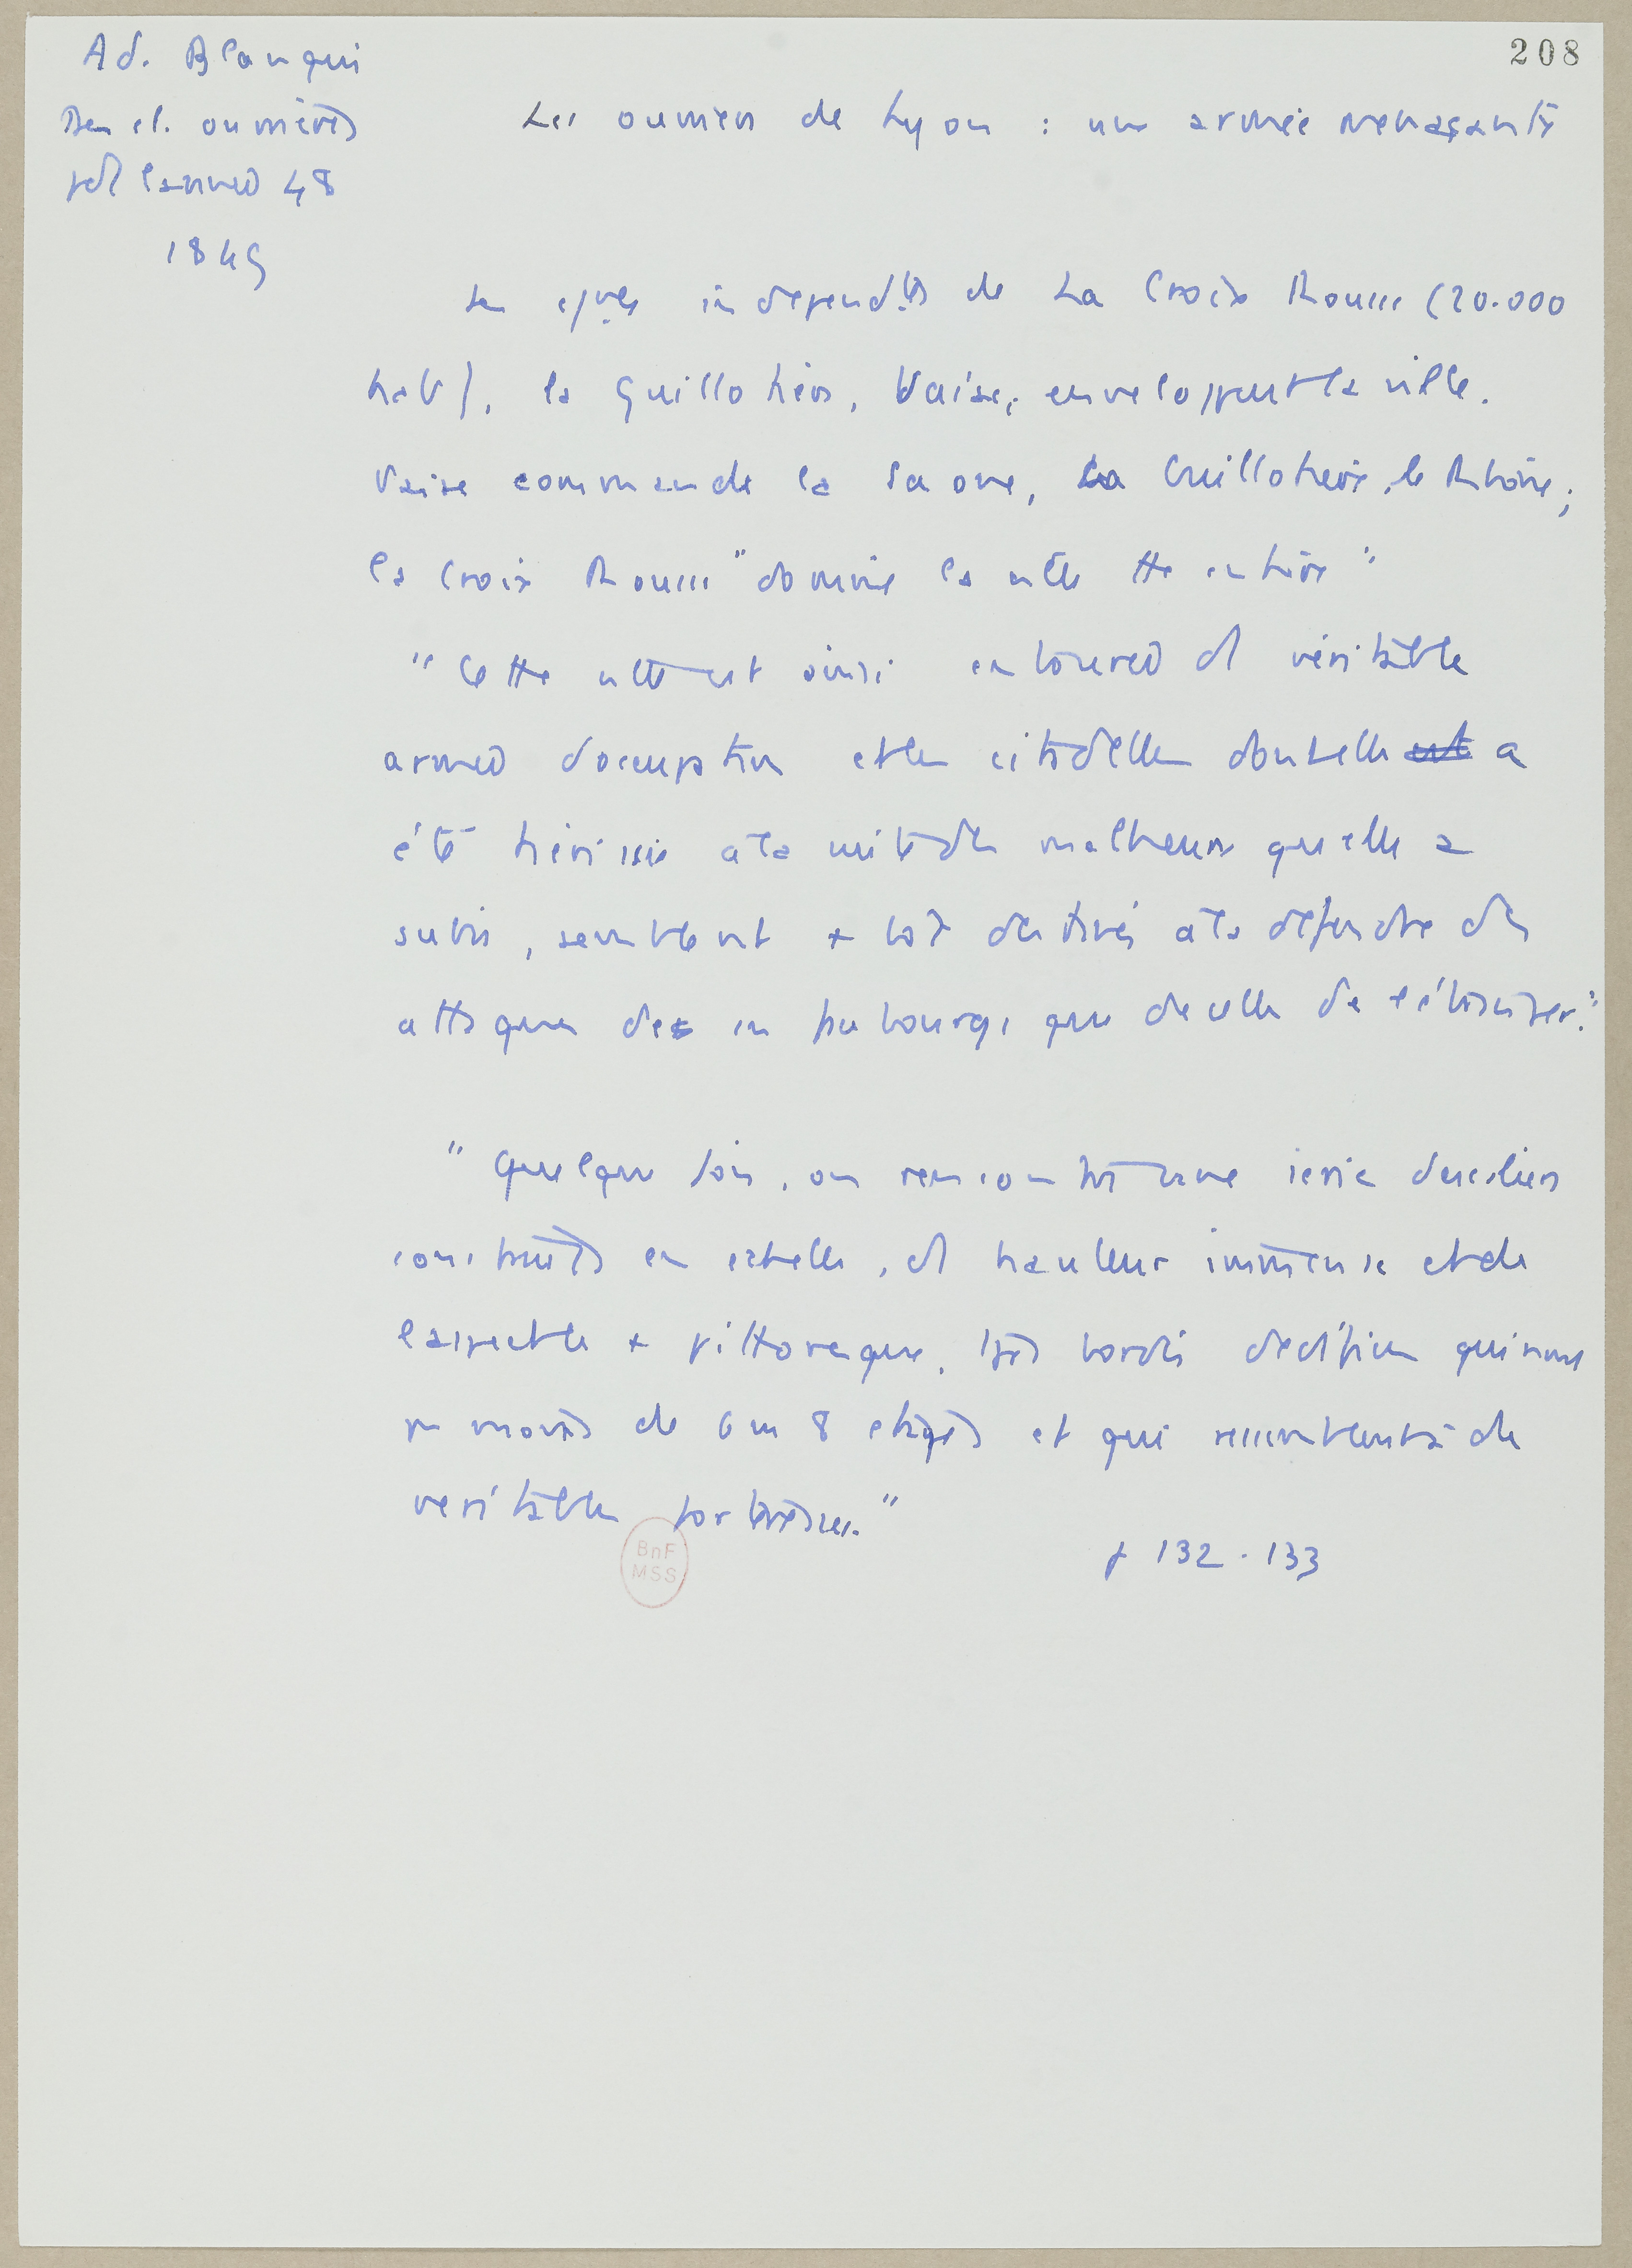 Ad. Blanqui
208
Des cl. ouvrières
pdt l'année 48
1849
Les ouvriers de Lyon : une armée menaçante
Les c/nes indépendtes de La Croix Rousse (20.000
habt), la Guillotière, Vaise, enveloppent la ville.
Vaise commande la Saone, La Guillotière, le Rhône ;
la Croix Rousse "domine la ville tte entière"
"Cette ville est ainsi entourée d' véritable
armée d'occupation et les citadelles dont elle a
été hérissée à la suite des malheurs qu'elle a
subis, semblent + tôt destinées à la défendre des
attaques de ses faubourgs que de celles de l'étranger."
"Quelque fois, on rencontre une série d'escaliers
construits en échelle, d' hauteur immense et de
l'aspect le + pittoresque, très bordés d'édifices qui n'ont
pas moins de 6 ou 8 étages et qui ressemblent à de
véritables forteresses."
BnF
MSS
p 132-133